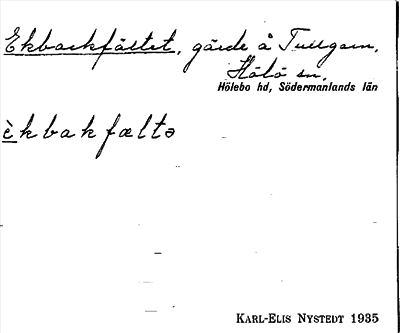 Ekbackfältet, gärde å Tullgarn,
Hölö sn.
Hölebo hd, Södermanlands län
èkbakfæltə
KARL-ELIS NYSTEDT 1935